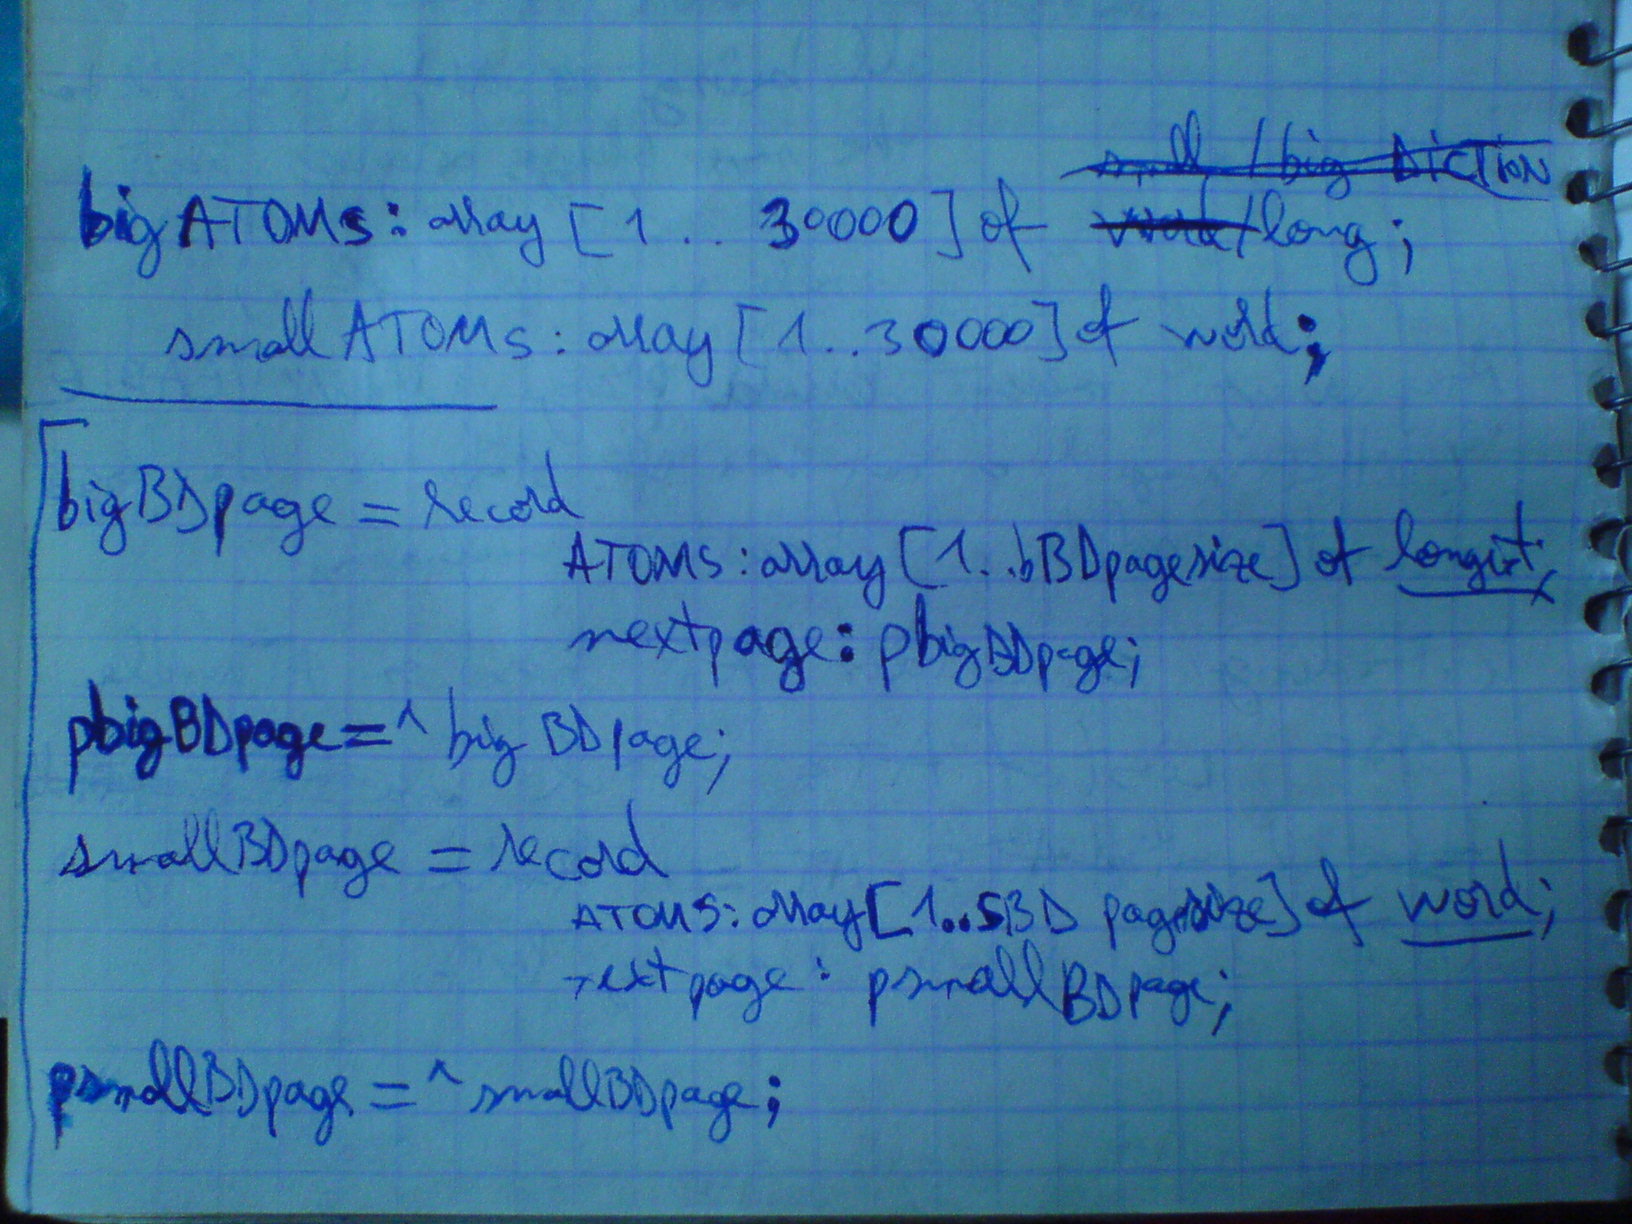 small / big DICTION
bigATOMS: array [1 .. 30000] of word/long;
smallATOMS: array [1..30000] of word;
bigBDpage = record
ATOMS: array [1..bBDpagesize] of longint;
nextpage: pbigBDpage;
pbigBDpage = ^bigBDpage;
smallBDpage = record
ATOMS: array [1..sBDpagesize] of word;
nextpage: psmallBDpage;
psmallBDpage = ^smallBDpage;